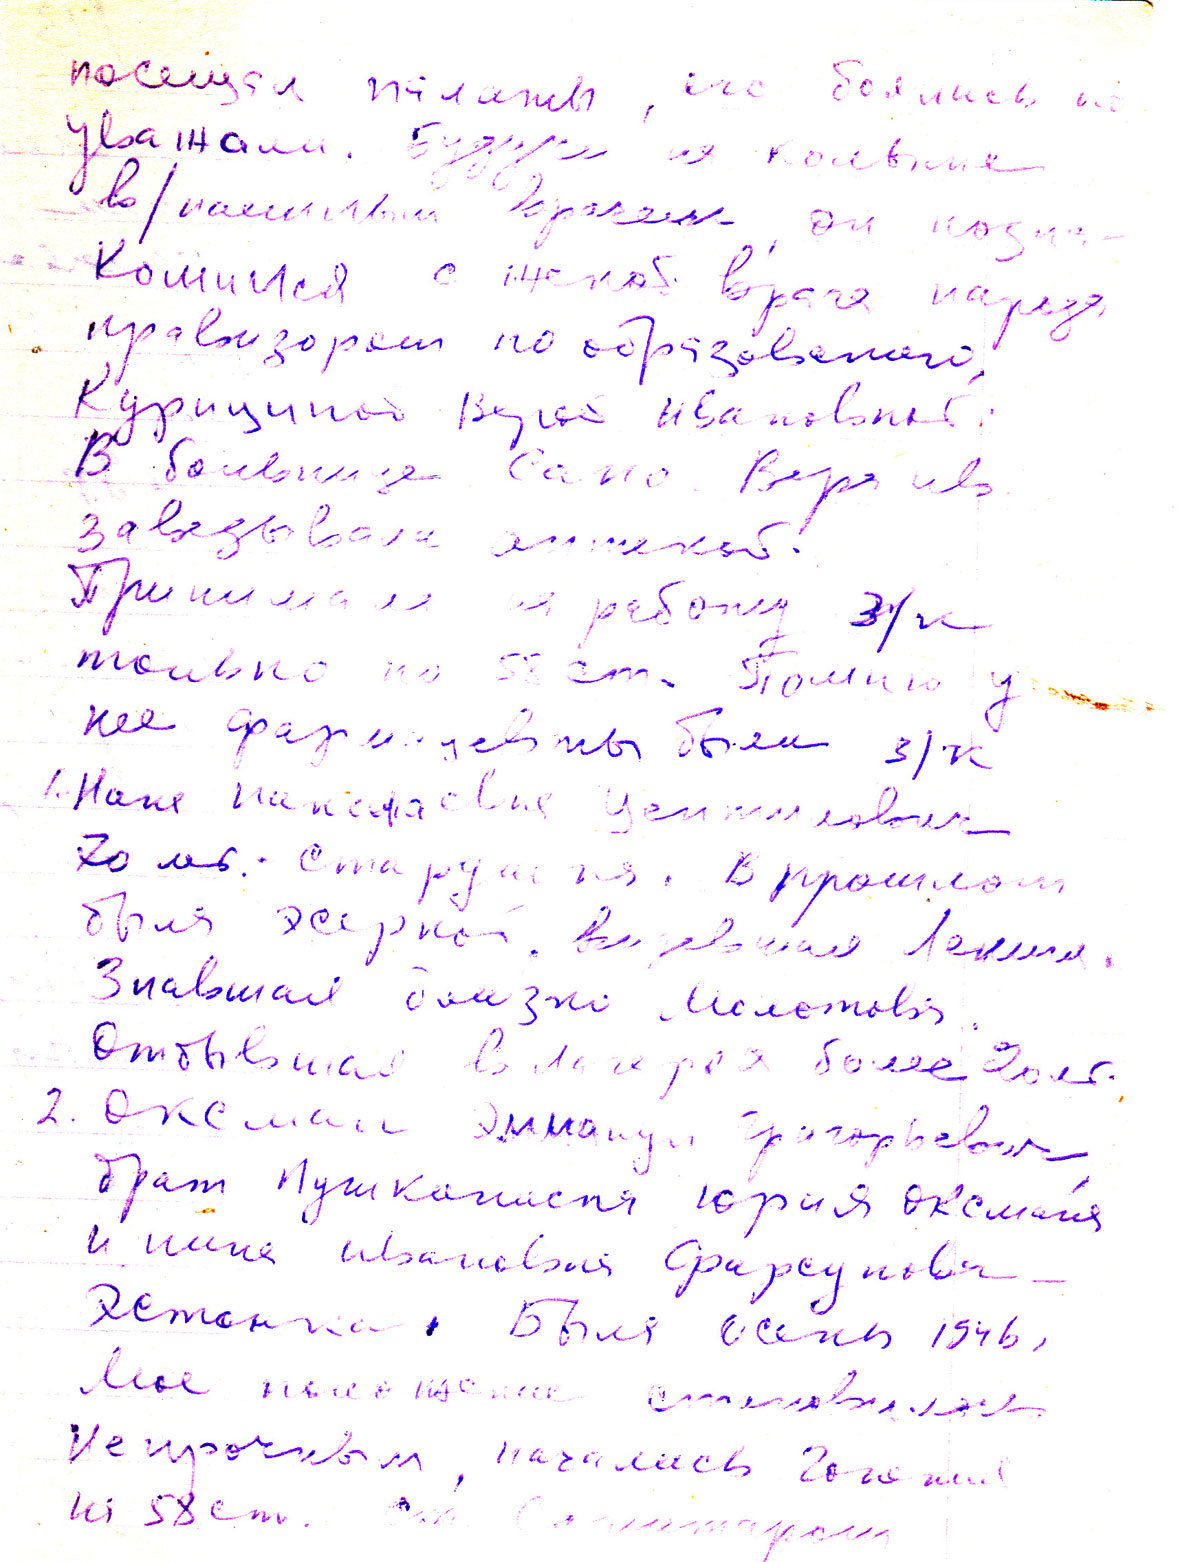 посещал палаты, его боялись но
уважали. Будучи на Колыме
в/наемным врачем, он позна-
комился с женой врача наряда
правизором по образованию,
Курициной Верой Ивановной.
В больнице Сано Вера ив
заведывала аптекой.
Принимала на работу з/к
только по 58 ст. Помню у
нее фармацевты были з/к
1. Нана Центилович
70 лет. Старушка. В прошлом
была эсеркой. Видевшая Ленина.
Знавшая близко Молотова.
Отбывшая в лагерях более 20 лет.
2. Оксман Эммануил Григорьевич,
брат Пушканиста Юрия Оксмана
и Нина Ивановна Фарсунова –
эстонка. Была осень 1946.
Мое положение становилось
непрочным, начались гонения
на 58 ст. Санитаром